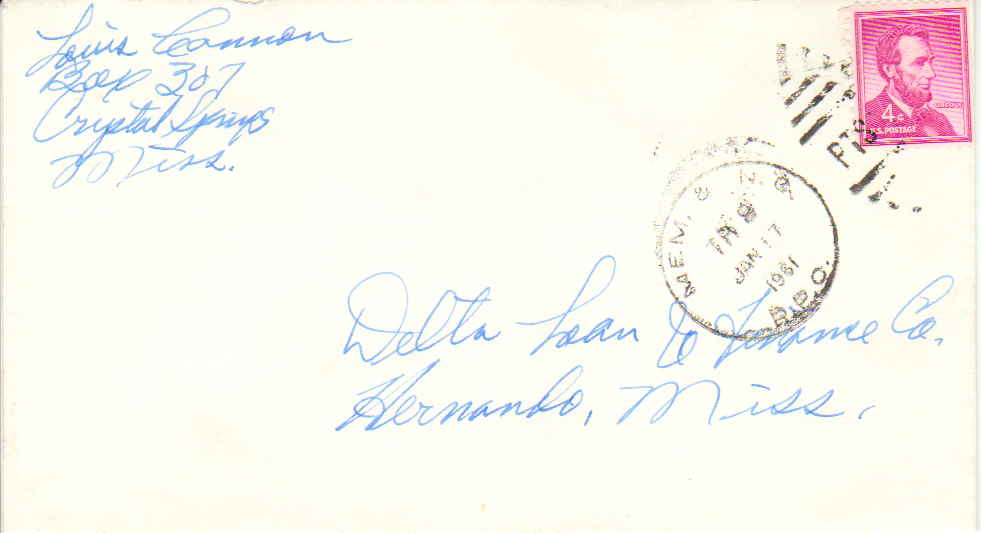 Louis Cannon
Box 307
Crystal Springs
Miss.
LINCOLN
4¢
U.S. POSTAGE
PTS
MEM. & N.O.
TR 9
JAN 17
1961
R.P.O.
Delta Loan & Finance Co.
Hernando, Miss.